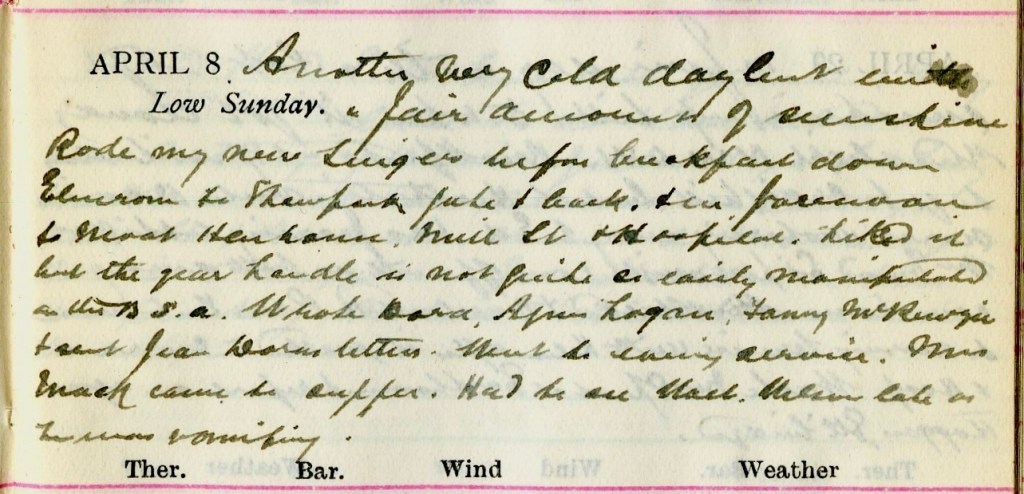 APRIL 8. Another very cold day but with
Low Sunday. a fair amount of sunshine
Rode my new Singer before breakfast down
Elmcrom to Shawpark Gate & back. & in forenoon
to Moat Henhouse, Mill St & Hospital. Liked it
but the gear handle is not quite as easily manipulated
as the B.S.A. Wrote Dora, Agnes Logan, Fanny McKenzie
& sent Jean Doras letters. Went to evening service. Mrs
Mack came to supper. Had to see Matt. late as
he was vomiting.
Ther. Bar. Wind Weather